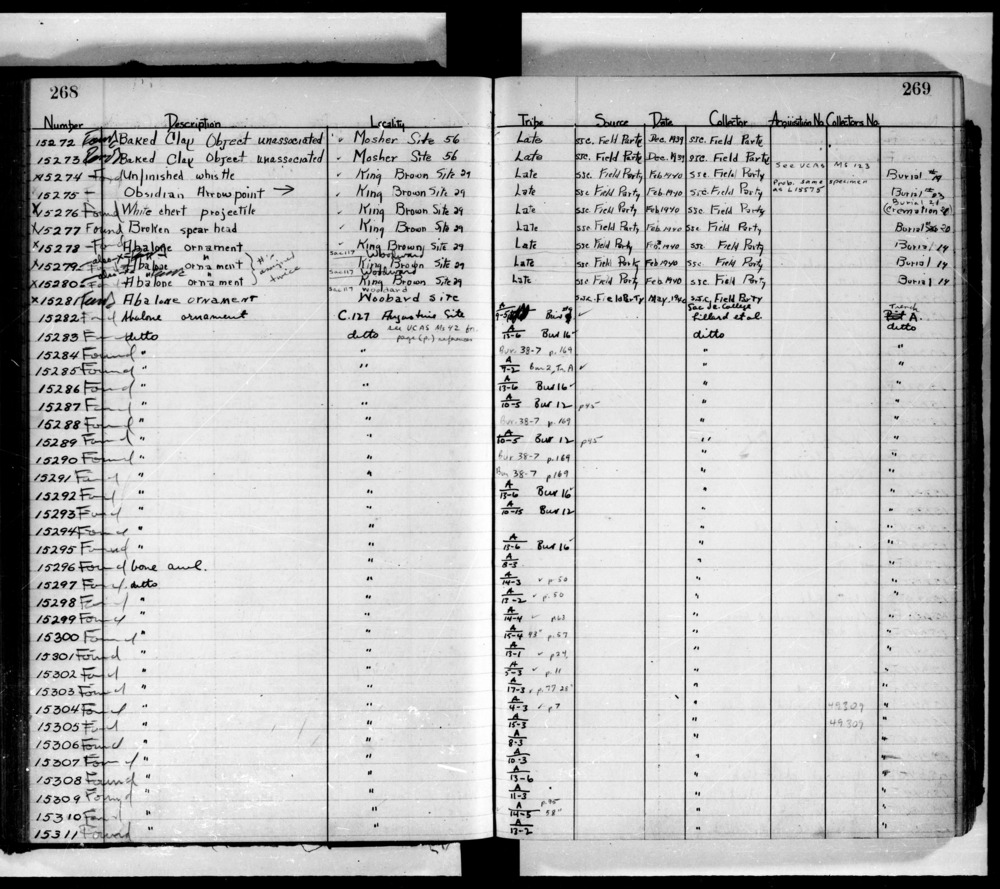 268
269
Number Description Locality Tribe Source Date Collector Acquisition No. Collectors No.
15272 Found Baked Clay Object unassociated ✓ Mosher Site 56 Late SJC. Field Party Dec. 1939 SJC. Field Party
15273 Found Baked Clay Object unassociated ✓ Mosher Site 56 Late SJC. Field Party Dec. 1939 SJC. Field Party
See UCAS MS 123
X15274 Found Unfinished whistle ✓ King Brown Site 29 Late SJC Field Party Feb 1940 SJC. Field Party Burial #
Prob. same specimen as L15575
15275 Obsidian Arrow point → ✓ King Brown Site 29 Late SJC Field Party Feb 1940 SJC. Field Party Burial #
X15276 Found White chert projectile ✓ King Brown Site 29 Late SJC. Field Party Feb 1940 SJC. Field Party Burial (Cremation
X15277 Found Broken spear head ✓ King Brown Site 29 Late SJC Field Party Feb 1940 SJC Field Party Burial
X15278 Found Abalone ornament ✓ King Brown Site 29 Late SJC Field Party Feb. 1940 SJC Field Party Burial 14
Sac 117 Woodward
X15279 Abalone ornament King Brown Site 29 Late SJC Field Party Feb 1940 SJC Field Party Burial 14
#'s assigned twice
Sac 117 Woodward
X15280 Found Abalone ornament King Brown Site 29 Late SJC. Field Party Feb 1940 SJC. Field Party Burial 14
Sac 117 Woodard
X15281 Found Abalone ornament Woobard Site SJC. Field Party May, 1940 SJC. Field Party
15282 Found Abalone ornament C.127 Augustine Site A Bur Sac Jr. College Lillard et al. Trench A.
15283 ditto ditto see UCAS Ms 42 for page (p.) references A/13-6 Bur 16 ditto ditto
15284 Found " " Bur. 38-7 p. 169 " "
15285 Found " " A/9-2 Bur 2, Tr. A ✓ " "
15286 Found " " A/13-6 Bur 16 ✓ " "
15287 Found " " A/10-5 Bur 12 p45 " "
15288 Found " " Bur. 38-7 p. 169 " "
15289 Found " " A/10-5 Bur 12 p45 " "
15290 Found " " Bur 38-7 p. 169 " "
15291 Found " " Bur 38-7 p. 169 " "
15292 Found " " A/13-6 Bur 16 " "
15293 Found " " A/10-15 Bur 12 " "
15294 Found " " " "
15295 Found " " A/13-6 Bur 16 " "
15296 Found bone awl. " A/8-3 " "
15297 Found ditto " A/14-3 ✓ p. 50 " "
15298 Found " " A/13-2 ✓ p. 50 " "
15299 Found " " A/14-4 ✓ p63 " "
15300 Found " " A/15-4 93" p. 67 " "
15301 Found " " A/13-1 ✓ p29 " "
15302 Found " " A/5-3 ✓ p. 11 " "
15303 Found " " A/17-3 ✓ p. 77 28" " "
15304 Found " " A/4-3 ✓ p7 " 49309 "
15305 Found " " A/15-3 " 49.309 "
15306 Found " " A/8-3 " "
15307 Found " " A/10-3 " "
15308 Found " " A/13-6 " "
15309 Found " " A/11-3 " "
15310 Found " " A/14-5 58" " "
15311 Found " " A/13-2 " "